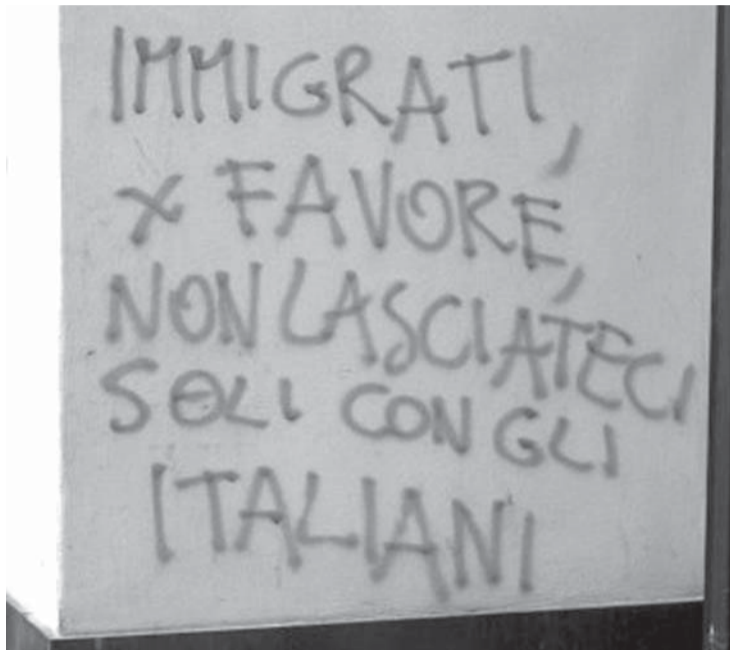 IMMIGRATI,
X FAVORE,
NON LASCIATECI
SOLI CON GLI
ITALIANI